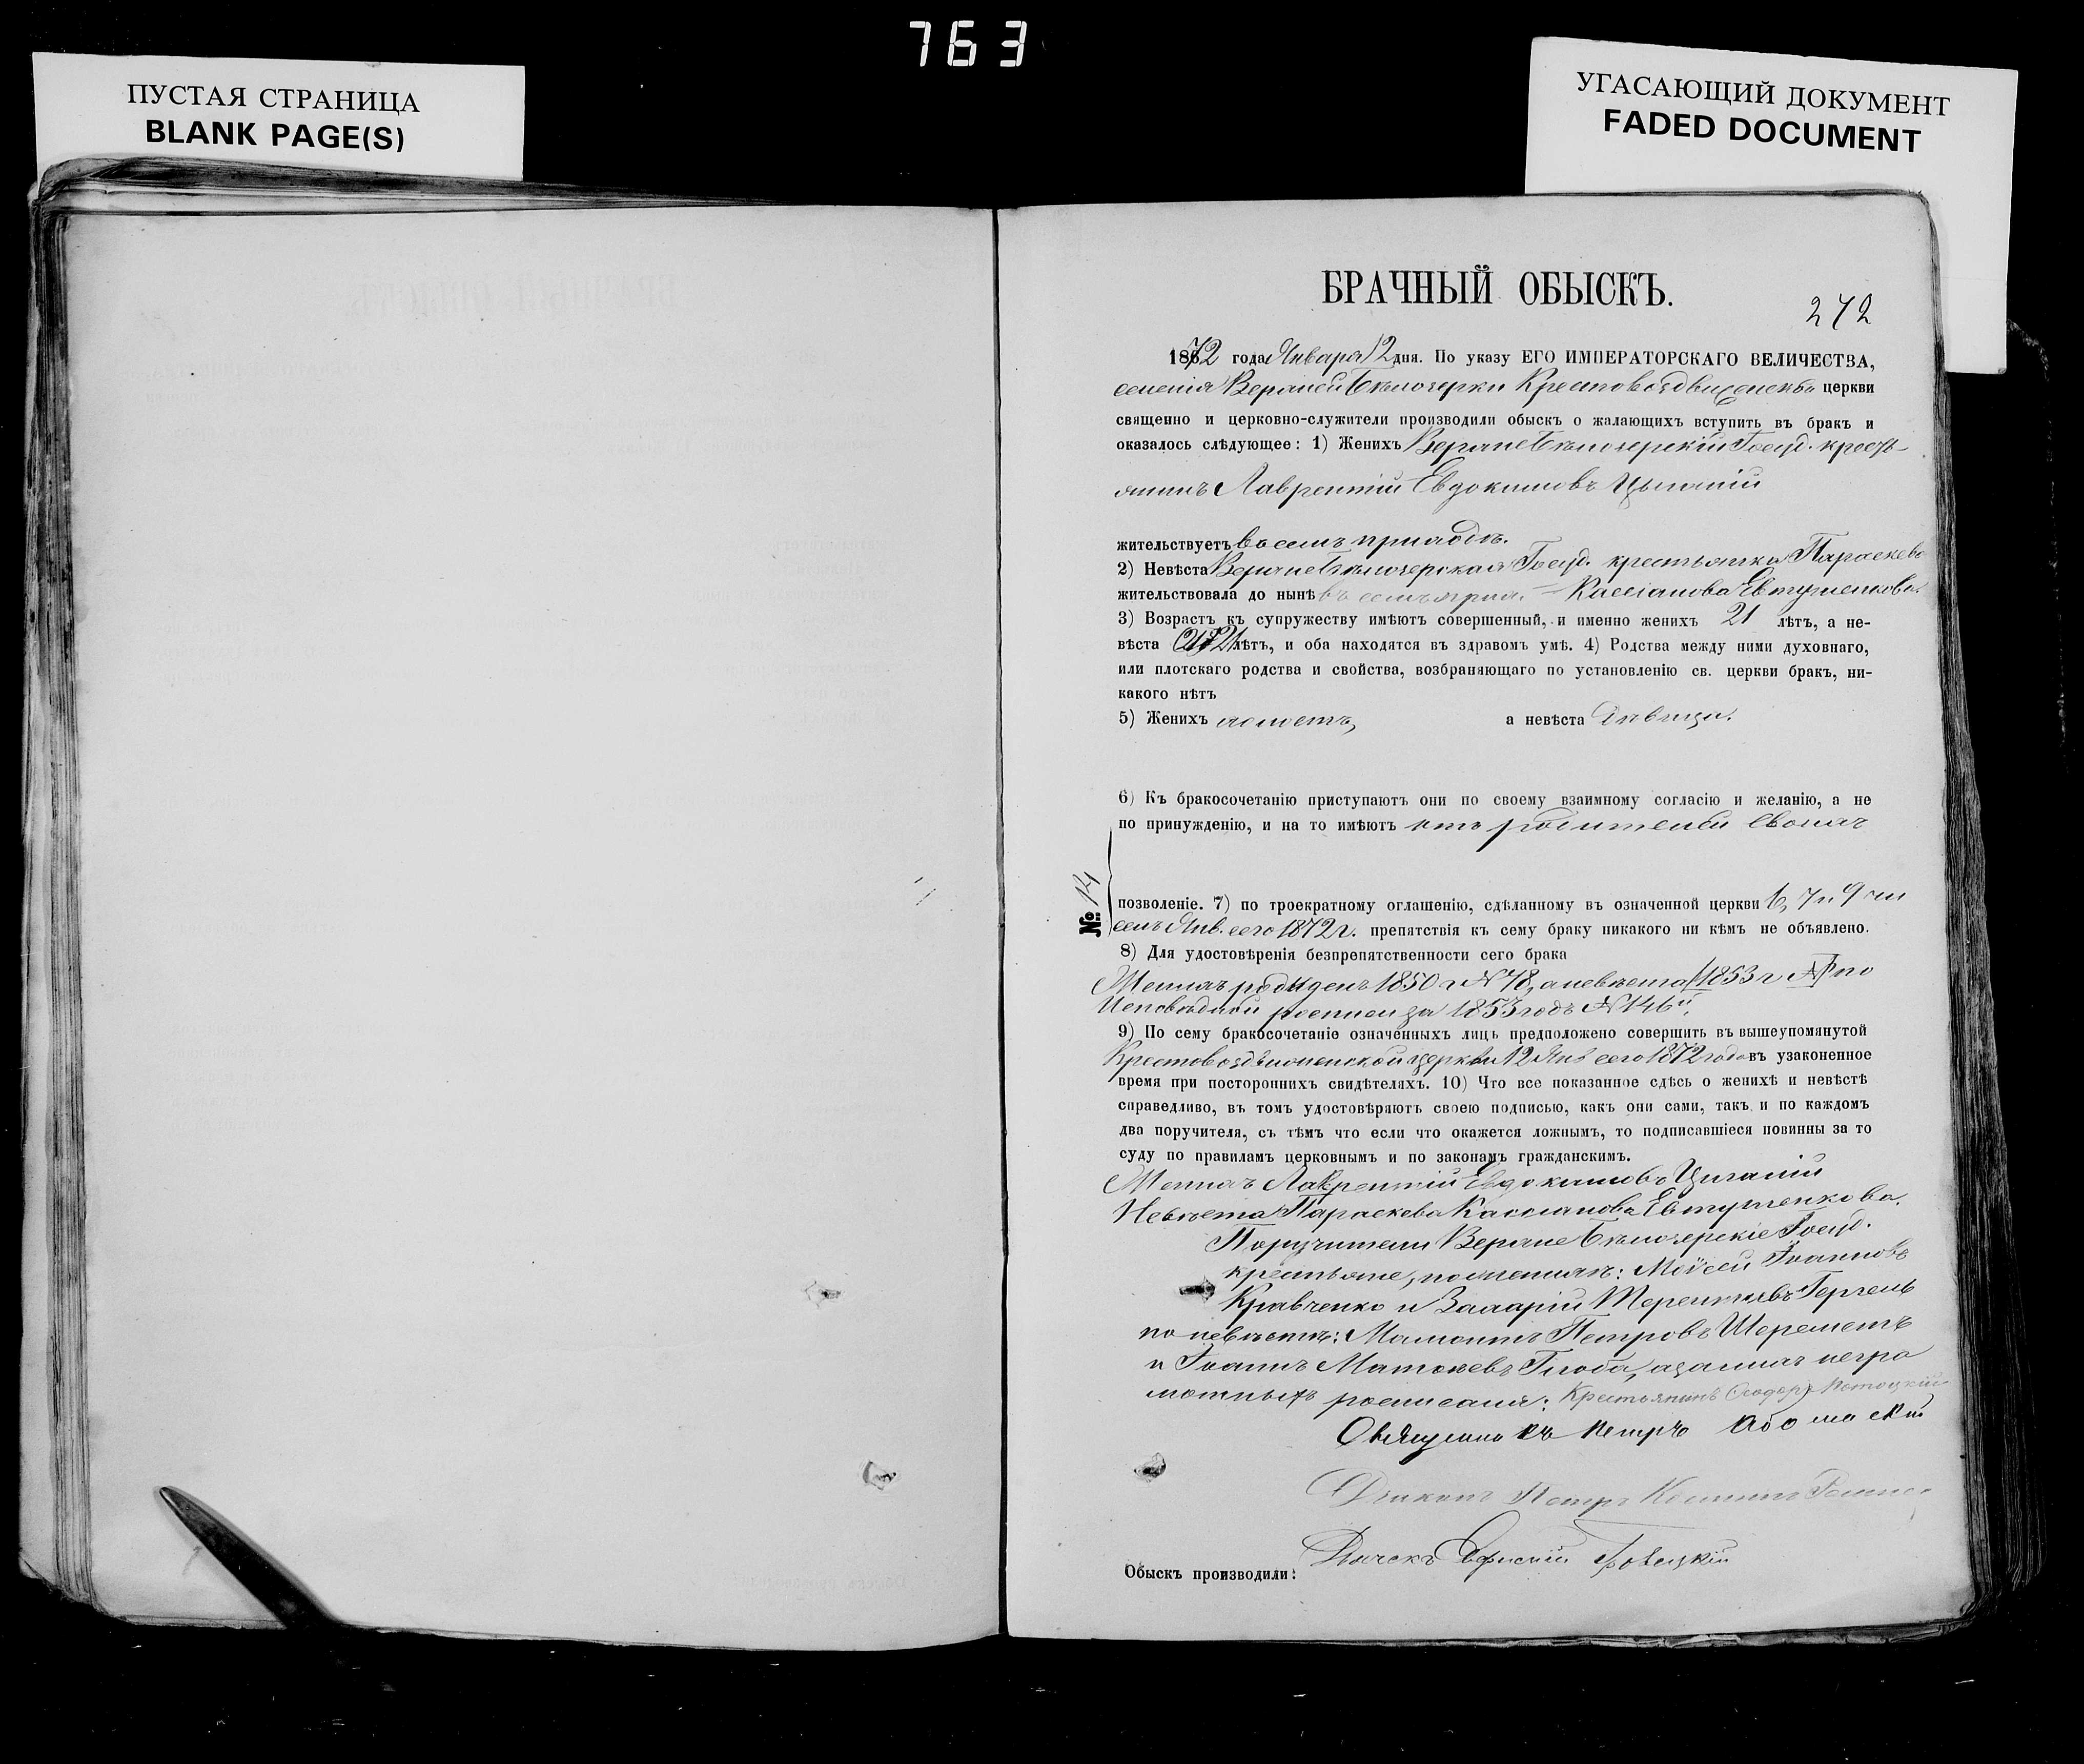 763
ПУСТАЯ СТРАНИЦА
BLANK PAGE(S)
УГАСАЮЩИЙ ДОКУМЕНТ
FADED DOCUMENT
БРАЧНЫЙ ОБЫСКЪ.
272
1872 года Января 12 дня. По указу ЕГО ИМПЕРАТОРСКАГО ВЕЛИЧЕСТВА,
селенія Верхней Бѣлозерки Крестовоздвиженской церкви
священно и церковно-служители производили обыскъ о жалающихъ вступить въ бракъ и
оказалось слѣдующее: 1) Женихъ Верхне Бѣлозерскій Госуд. кресть-
янинъ Лаврентій Евдокимовъ Цыганій
жительствуетъ въ семъ приходѣ.
2) Невѣста Верхне Бѣлозерская Госуд. крестьянка Параскева
жительствовала до нынѣ въ семъ прих. — Кассіанова Евтушенкова.
3) Возрастъ къ супружеству имѣютъ совершенный, и именно женихъ 21 лѣтъ, а не-
вѣста лѣтъ, и оба находятся въ здравомъ умѣ. 4) Родства между ними духовнаго,
или плотскаго родства и свойства, возбраняющаго по установленію св. церкви бракъ, ни-
какого нѣтъ
5) Женихъ холостъ, а невѣста дѣвица.
6) Къ бракосочетанію приступаютъ они по своему взаимному согласію и желанію, а не
по принужденію, и на то имѣютъ отъ родителей своихъ
№ 14
позволеніе. 7) по троекратному оглашенію, сдѣланному въ означенной церкви 6, 7 и 9 чи
селъ Янв. сего 1872 г. препятствія къ сему браку никакого ни кѣмъ не объявлено.
8) Для удостовѣренія безпрепятственности сего брака
Женихъ рожденъ 1850 г. № 78, а невѣста 1853 г. по
Исповѣдной росписи за 1853 годъ № 146й.
9) По сему бракосочетаніе означенныхъ лицъ предположено совершить въ вышеупомянутой
Крестовоздвиженской церкви 12 Янв сего 1872 года въ узаконенное
время при постороннихъ свидѣтеляхъ. 10) Что все показанное сдѣсь о женихѣ и невѣстѣ
справедливо, въ томъ удостовѣряютъ своею подписью, какъ они сами, такъ и по каждомъ
два поручителя, съ тѣмъ что если что окажется ложнымъ, то подписавшіеся повинны за то
суду по правиламъ церковнымъ и по законамъ гражданскимъ.
Женихъ Лаврентій Евдокимовъ Цыганій
Невѣста Параскева Кассіанова Евтушенкова.
Поручители Верхне Бѣлозерскіе Госуд.
крестьяне, по женихѣ: Моѵсей Іоанновъ
Кравченко и Захарій Терентіевъ Гергель
по невѣстѣ: Мамонтъ Петровъ Шереметъ
и Іоаннъ Матвеевъ Глоба, а за нихъ негра
мотныхъ росписался: Крестьянинъ Ѳеодоръ
Священникъ Петръ
Діаконъ Петръ
Дьячекъ
Обыскъ производили: